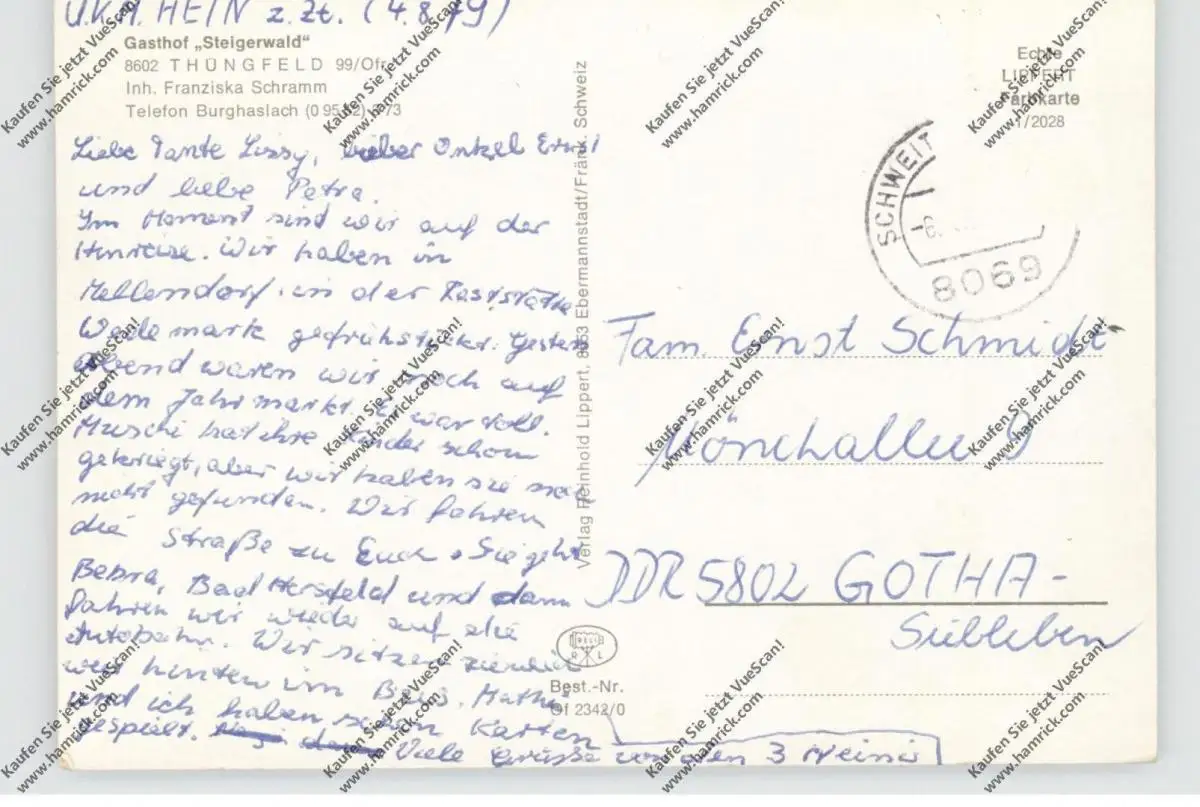 U.K.M. HEIN z. Zt. (4.8.79)
Gasthof „Steigerwald"
8602 THÜNGFELD 99/Ofr.
Inh. Franziska Schramm
Telefon Burghaslach (0 95 52) 373
Liebe Tante Lissy, lieber Onkel Ernst
und liebe Petra.
Im Moment sind wir auf der
Hinreise. Wir haben in
Mellendorf in der Raststätte
Wedemark gefrühstückt. Gestern
Abend waren wir noch auf
dem Jahrmarkt. Es war voll.
Muschi hat ihre Kinder schon
gekriegt, aber wir haben sie noch
nicht gefunden. Wir fahren
die Straße zu Euch. Sie geht
Bebra, Bad Hersfeld und dann
fahren wir wieder auf die
Autobahn. Wir sitzen ziemlich
weit hinten im Bus.
und ich haben schon Karten
gespielt. Viele Grüße von den 3 Heinis
Verlag Reinhold Lippert, 8553 Ebermannstadt/Fränk. Schweiz
Best.-Nr.
Of 2342/0
Echte
LIPPERT
Farbkarte
1/2028
SCHWEIT
-6.
8069
Fam. Ernst Schmidt
Mönchallee 9
DDR 5802 GOTHA-
Siebleben
Kaufen Sie jetzt VueScan!
www.hamrick.com